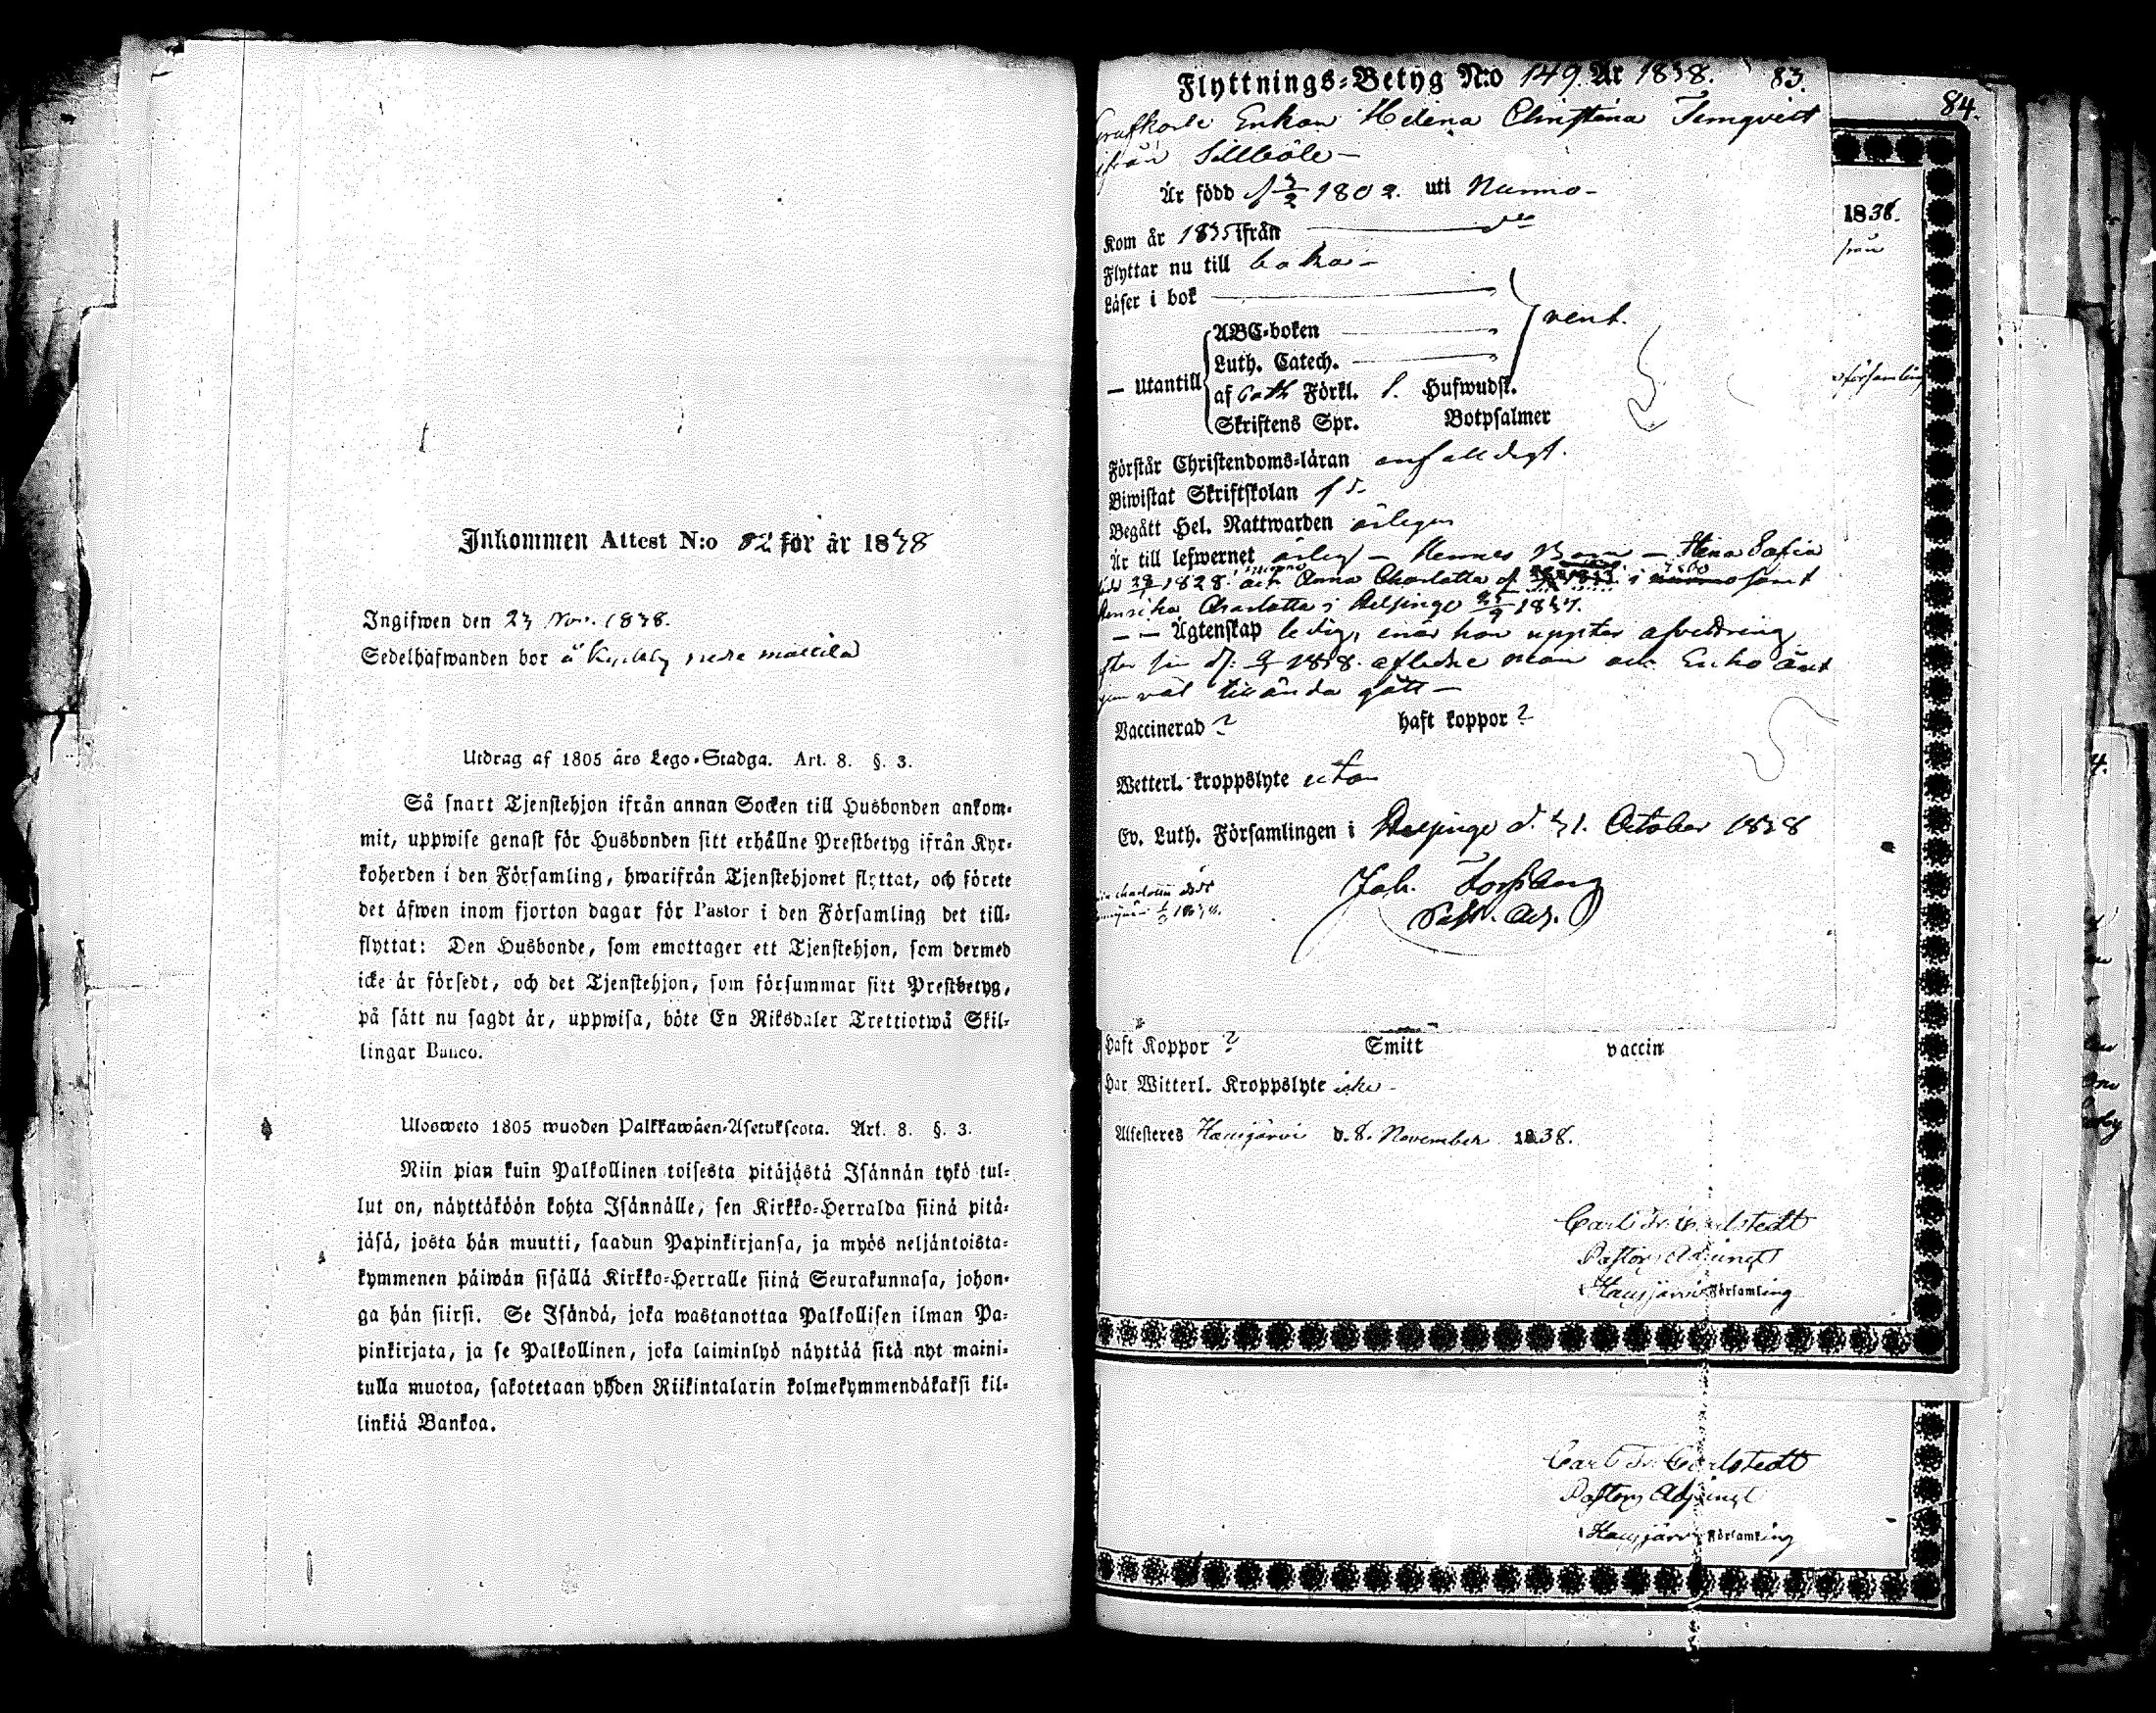 Inkommen Attest N:o 82 för år 1838
Ingifwen den 23 Nov. 1838.
Sedelhafwanden bor å nedre
Utdrag af 1805 års Lego-Stadga. Art. 8. §. 3.
Så snart Tjenstehjon ifrån annan Socken till Husbonden ankom-
mit, uppwise genast för Husbonden sitt erhållne Prestbetyg ifrån Kyr-
koherden i den Församling, hwarifrån Tjenstehjonet flyttat, och förete
det äfwen inom fjorton dagar för Pastor i den Församling det till-
flyttat: Den Husbonde, som emottager ett Tjenstehjon, som dermed
icke är försedt, och det Tjenstehjon, som försummar sitt Prestbetyg,
på sätt nu sagdt är, uppwisa, böte En Riksdaler Trettiotwå Skil-
lingar Banco.
Ulosweto 1805 wuoden Palkkawäen-Asetuksesta. Art. 8. §. 3.
Niin pian kuin Palkollinen toisesta pitäjästä Isännän tykö tul-
lut on, näyttäköön kohta Isännälle, sen Kirkko-Herralda siinä pitä-
jäsä, josta hän muutti, saadun Papinkirjansa, ja myös neljäntoista-
kymmenen päiwän sisällä Kirkko-Herralle siinä Seurakunnasa, johon-
ga hän siirsi. Se Isändä, joka wastanottaa Palkollisen ilman Pa-
pinkirjata, ja se Palkollinen, joka laiminlyö näyttää sitä nyt maini-
tulla muotoa, sakotetaan yhden Riikintalarin kolmekymmendäkaksi kil-
linkiä Bankoa.
Flyttnings-Betyg N:o 149. År 1838. 83.
84.
Enkan Helena Christina
ifrån Sillböle
Är född d. 1802. uti Nummo
Kom år 1835 ifrån
Flyttar nu till
Läser i bok
ABC-boken
vent.
Luth. Catech.
— Utantill
af Förkl. Hufwudst.
Skriftens Spr. Botpsalmer
Förstår Christendoms-läran enfalldigt.
Biwistat Skriftskolan
Begått Hel. Nattwarden årligen
Är till lefwernet ärlig — Hennes Barn — Stina Sofia
1828. och Anna Charlotta i samt
Charlotta i Helsinge
— — Ägtenskap ledig, enär hon uppter afvittring
efter sin 1838. aflidne man och Enko året
väl till ända gått —
Vaccinerad ? haft koppor ?
Wetterl. kroppslyte utan
Ev. Luth. Församlingen i Helsinge d. 31. October 1838
Joh. Forsberg
Past. Adj.
1838.
från
församling
Haft Koppor ? Smitt vaccin
Har Witterl. Kroppslyte icke
Attesteres Hausjärvi d. 8. November 1838.
Carl Fr. Carlstedt
Pastors Adjunct
i Hausjärvi Församling
Carl Fr. Carlstedt
Pastors Adjunct
i Hausjärvi Församling